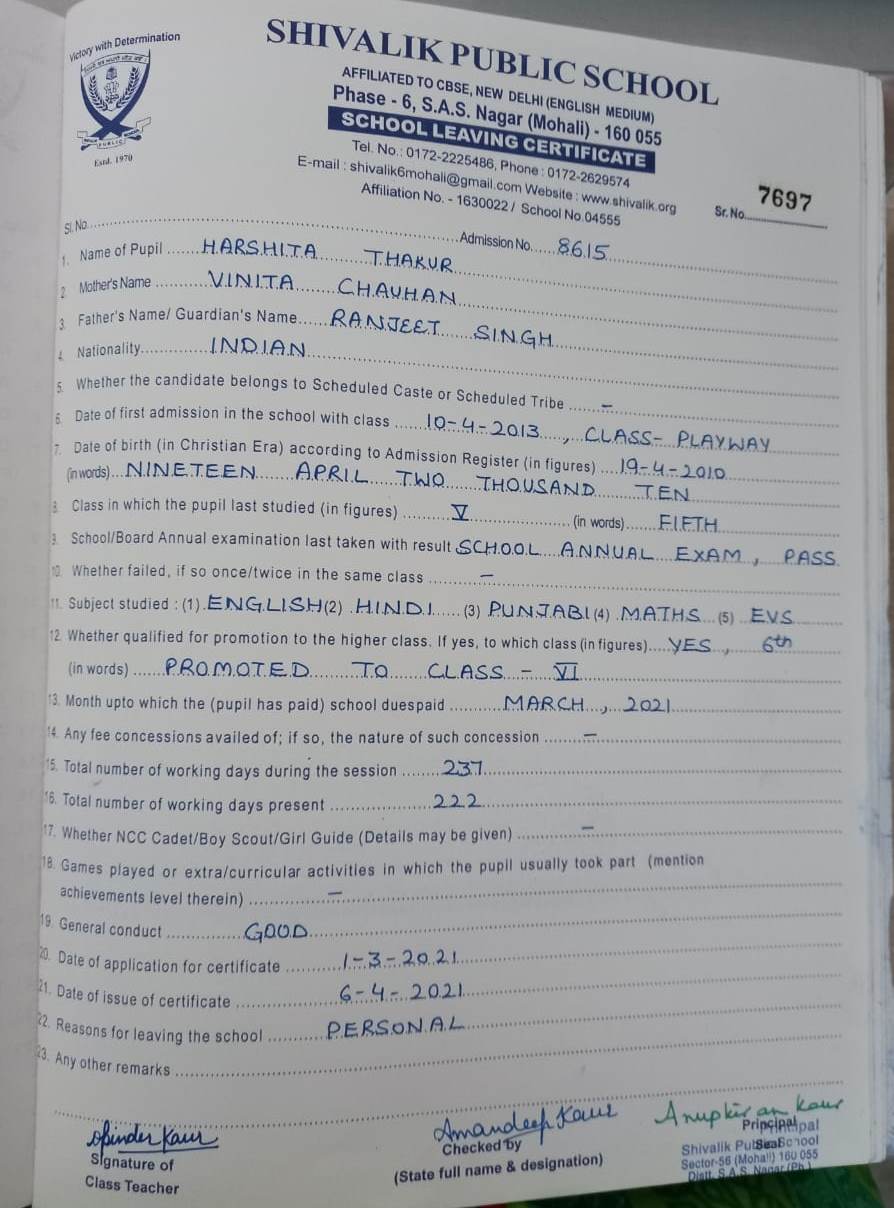 Victory with Determination
SHIVALIK PUBLIC SCHOOL
AFFILIATED TO CBSE, NEW DELHI (ENGLISH MEDIUM)
Phase - 6, S.A.S. Nagar (Mohali) - 160 055
SCHOOL LEAVING CERTIFICATE
Estd. 1970
Tel. No.: 0172-2225486, Phone : 0172-2629574
E-mail : shivalik6mohali@gmail.com Website : www.shivalik.org
Affiliation No. - 1630022 / School No.04555
Sr. No. 7697
Sl. No. Admission No. 8615
1. Name of Pupil HARSHITA THAKUR
2. Mother's Name VINITA CHAUHAN
3. Father's Name/ Guardian's Name RANJEET SINGH
4. Nationality INDIAN
5. Whether the candidate belongs to Scheduled Caste or Scheduled Tribe –
6. Date of first admission in the school with class 10-4-2013, CLASS- PLAYWAY
7. Date of birth (in Christian Era) according to Admission Register (in figures) 19-4-2010
(in words) NINETEEN APRIL TWO THOUSAND TEN
8. Class in which the pupil last studied (in figures) V (in words) FIFTH
9. School/Board Annual examination last taken with result SCHOOL ANNUAL EXAM, PASS
10. Whether failed, if so once/twice in the same class –
11. Subject studied : (1) ENGLISH (2) HINDI (3) PUNJABI (4) MATHS (5) EVS
12. Whether qualified for promotion to the higher class. If yes, to which class (in figures) YES, 6th
(in words) PROMOTED TO CLASS - VI
13. Month upto which the (pupil has paid) school duespaid MARCH, 2021
14. Any fee concessions availed of; if so, the nature of such concession –
15. Total number of working days during the session 237
16. Total number of working days present 222
17. Whether NCC Cadet/Boy Scout/Girl Guide (Details may be given) –
18. Games played or extra/curricular activities in which the pupil usually took part (mention
achievements level therein) –
19. General conduct GOOD
20. Date of application for certificate 1-3-2021
21. Date of issue of certificate 6-4-2021
22. Reasons for leaving the school PERSONAL
23. Any other remarks
Kaur Amandeep Kaur Anupkiran Kaur
Signature of Checked by Principal
Class Teacher (State full name & designation) Shivalik Public School
Sector-56 (Mohali) 160 055
Distt. S.A.S. Nagar (Pb.)